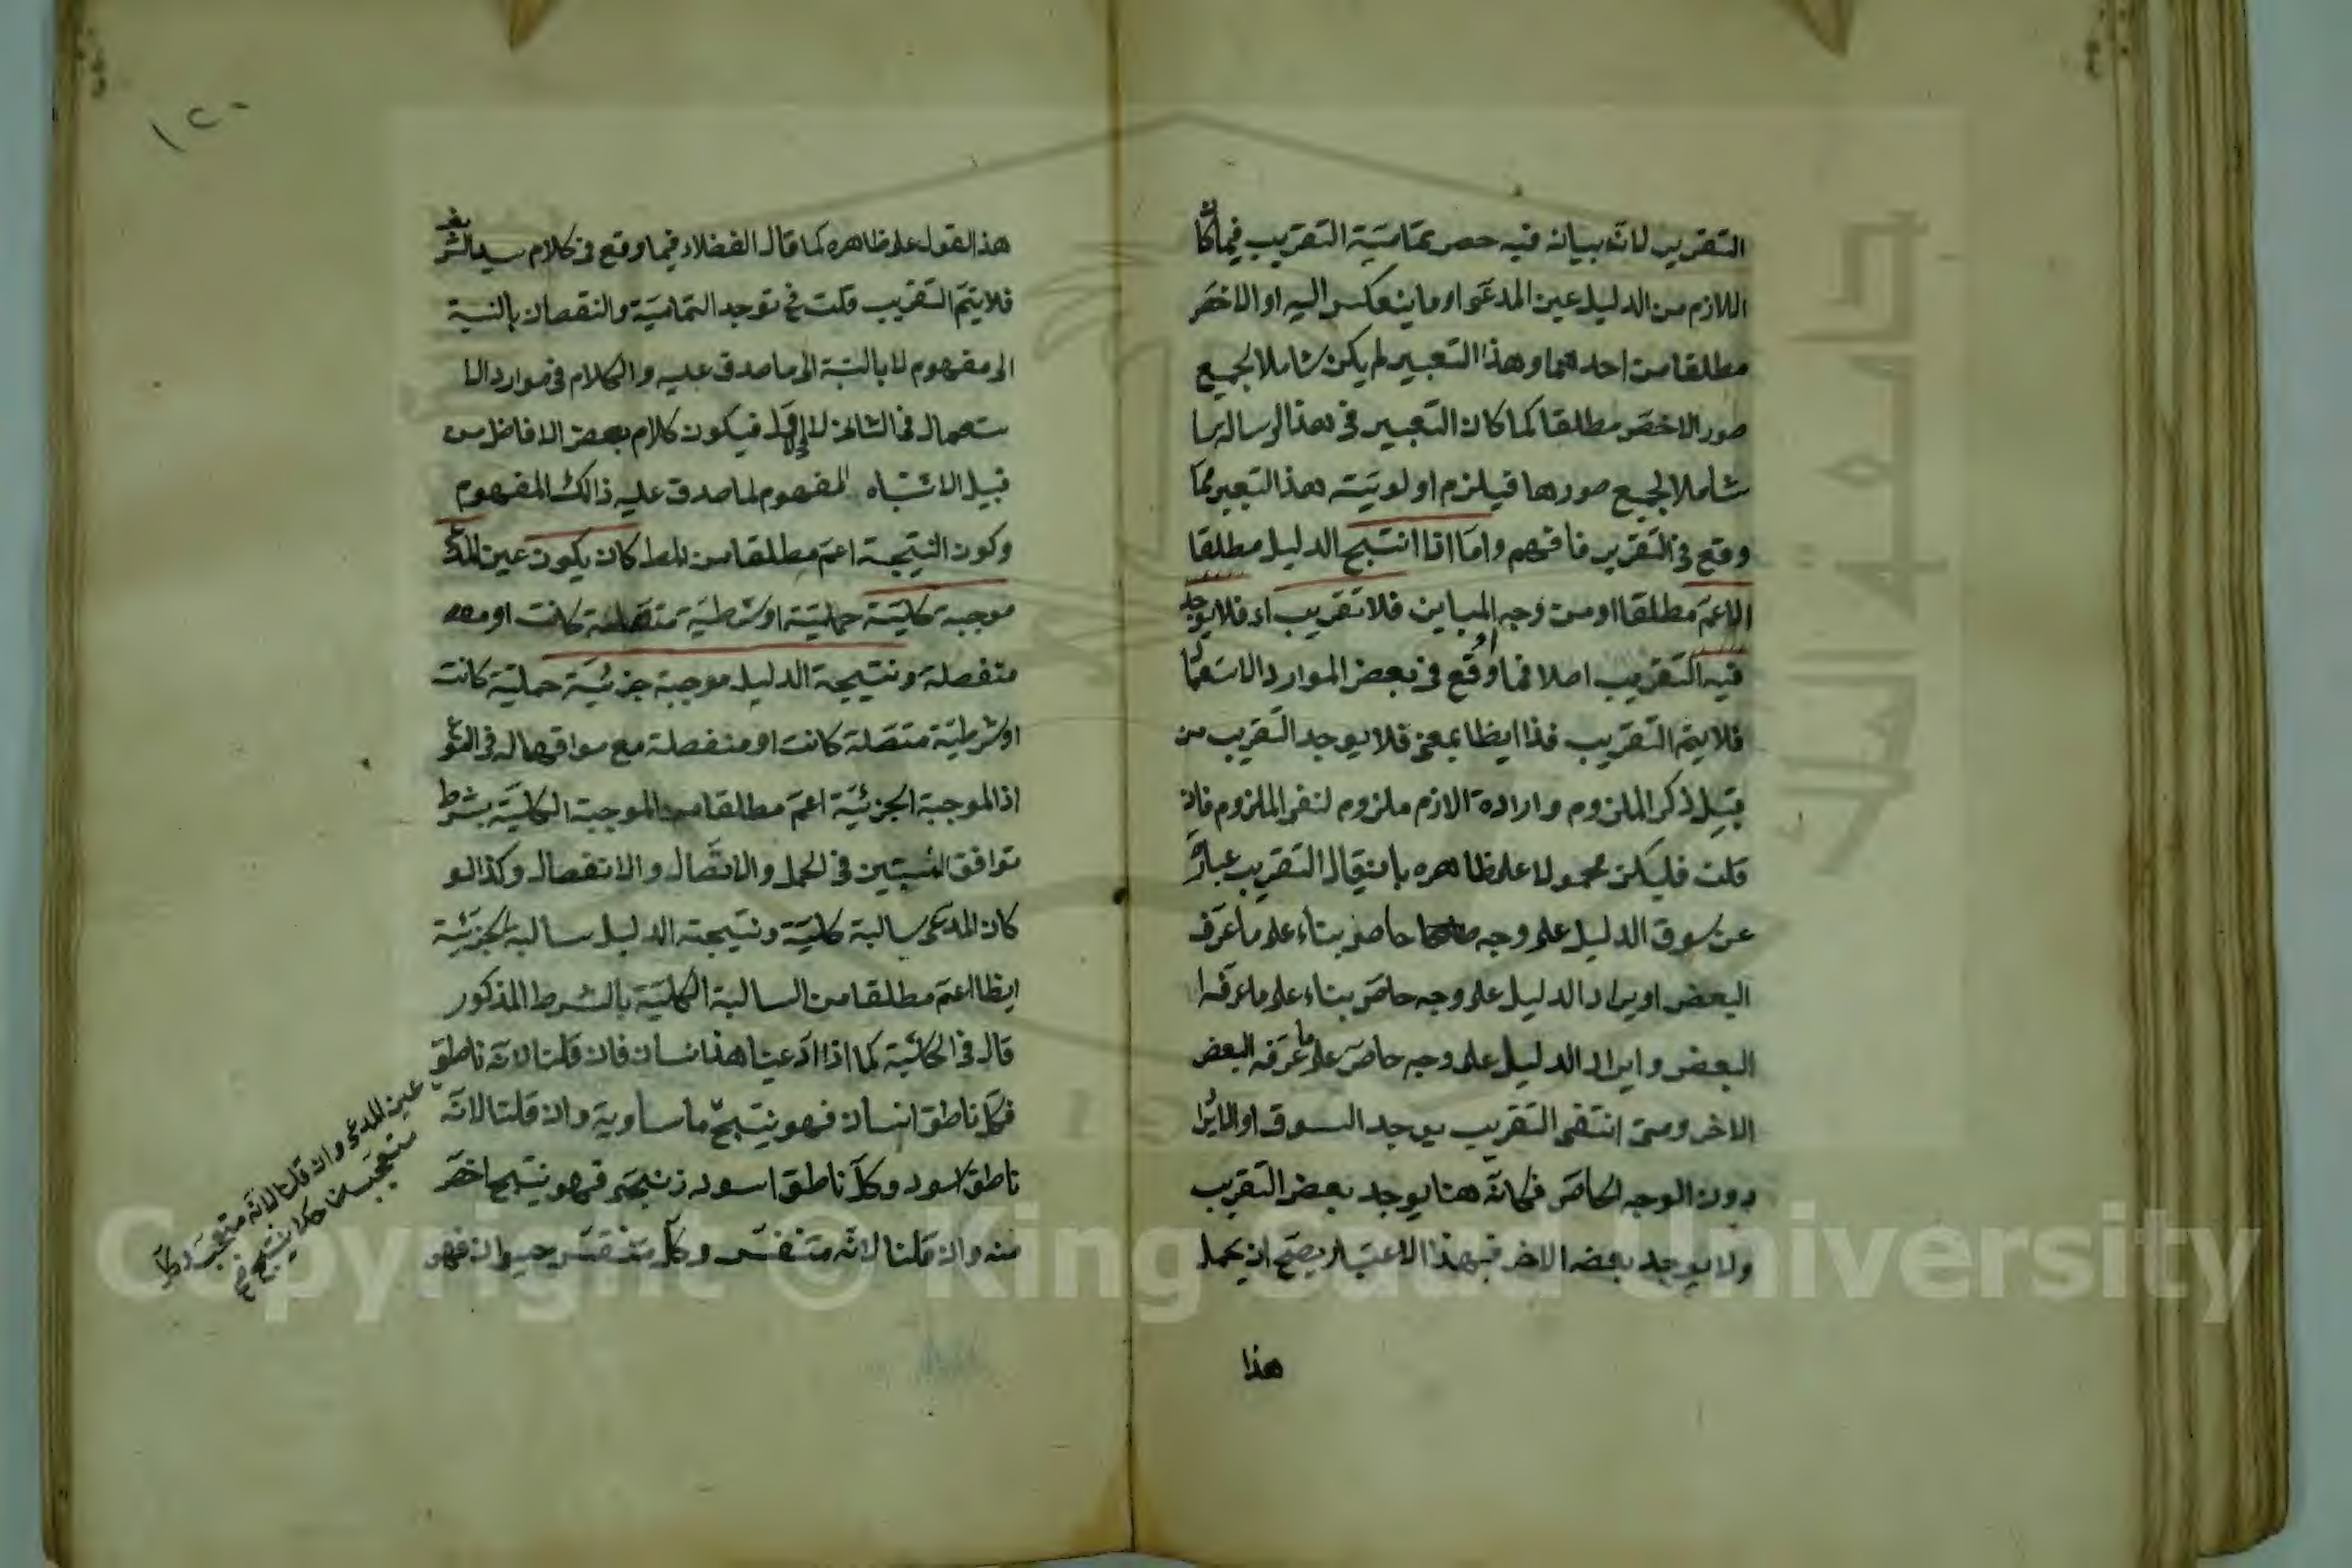 التقرير لانه ببيانه فيه حصر تمامية التقريب فيما كا
اللازم من الدليل عين المدعى او ما ينعكس اليه او الاخص
مطلقا من احدهما وهذا التعبير لم يكن شاملا لجميع
صور الاخص مطلقا كما كان التعبير في هذا الرسالة
شاملا لجميع صورها فيلزم اولويته هذا التعبير مما
وقع في التقرير فافهم واما اذا انتج الدليل مطلقا
الاعم مطلقا او من وجه او المباين فلا تقريب اى فلا يوجد
فيه التقريب اصلا فما وقع في بعض الموارد الاستعما
فلا يتم التقريب فذا ايضا بمعنى فلا يوجد التقريب من
قبيل ذكر الملزوم وارادة الازم ملزوم لنفى الملزوم فان
قلت فليكن محمولا على ظاهره بان يقال التقريب عبارة
عن سوق الدليل على وجه خاص بناء على ما عرف
البعض او يراد الدليل على وجه خاص بناء على ما عرفه
البعض وايراد الدليل على وجه خاص على ما عرفه البعض
الاخر ومتى انتفى التقريب يوجد السوق او الايرا
دون الوجه الخاص فكانه هنا يوجد بعض التقريب
ولا يوجد بعضه الاخر فبهذا الاعتبار يصح ان يحمل
هذا
١٢٠
هذا القول على ظاهره كما قال الفضلاء فيما وقع في كلام سيد الشريف
فلا يتم التقريب قلت في توجد التمامية والنقصان بالنسبة
الى مفهوم لا بالنسبة الى ما صدق عليه والكلام في موارد الا
ستعمال في الثاني لا الاول فيكون كلام بعض الافاضل من
قبيل الاشتباه المفهوم لما صدق عليه ذالك المفهوم
وكون النتيجة اعم مطلقا من المط كان يكون عين المدعى
موجبة كلية حملية او شرطية متصلة كانت او
منفصلة ونتيجة الدليل موجبة جزئية حملية كانت
او شرطية متصلة كانت او منفصلة مع موافقها له في
اذ الموجبة الجزئية اعم مطلقا من الموجبة الكلية بشرط
توافق النسبتين في الحمل والاتصال والانفصال وكذا لو
كان المدعى سالبة كلية ونتيجته الدليل سالبة جزئية
ايضا اعم مطلقا من السالبة الكلية بالشرط المذكور
قال في الحاشية كما اذا ادعينا هذا انسان فان قلنا لانه ناطق
فكل ناطق انسان فهو ينتج ما ساويه وان قلنا لانه
ناطق اسود وكل ناطق اسود زنجى فهو ينتج اخص
منه وان قلنا لانه متنفس وكل متنفس حيوان فهو
عين المدعى وان قلنا لانه متعجب وكل
متعجب
Copyright © King Saud University